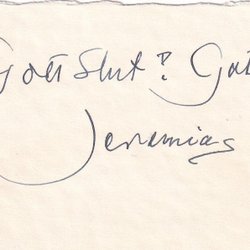 Gott Slut? Got
Jeremias